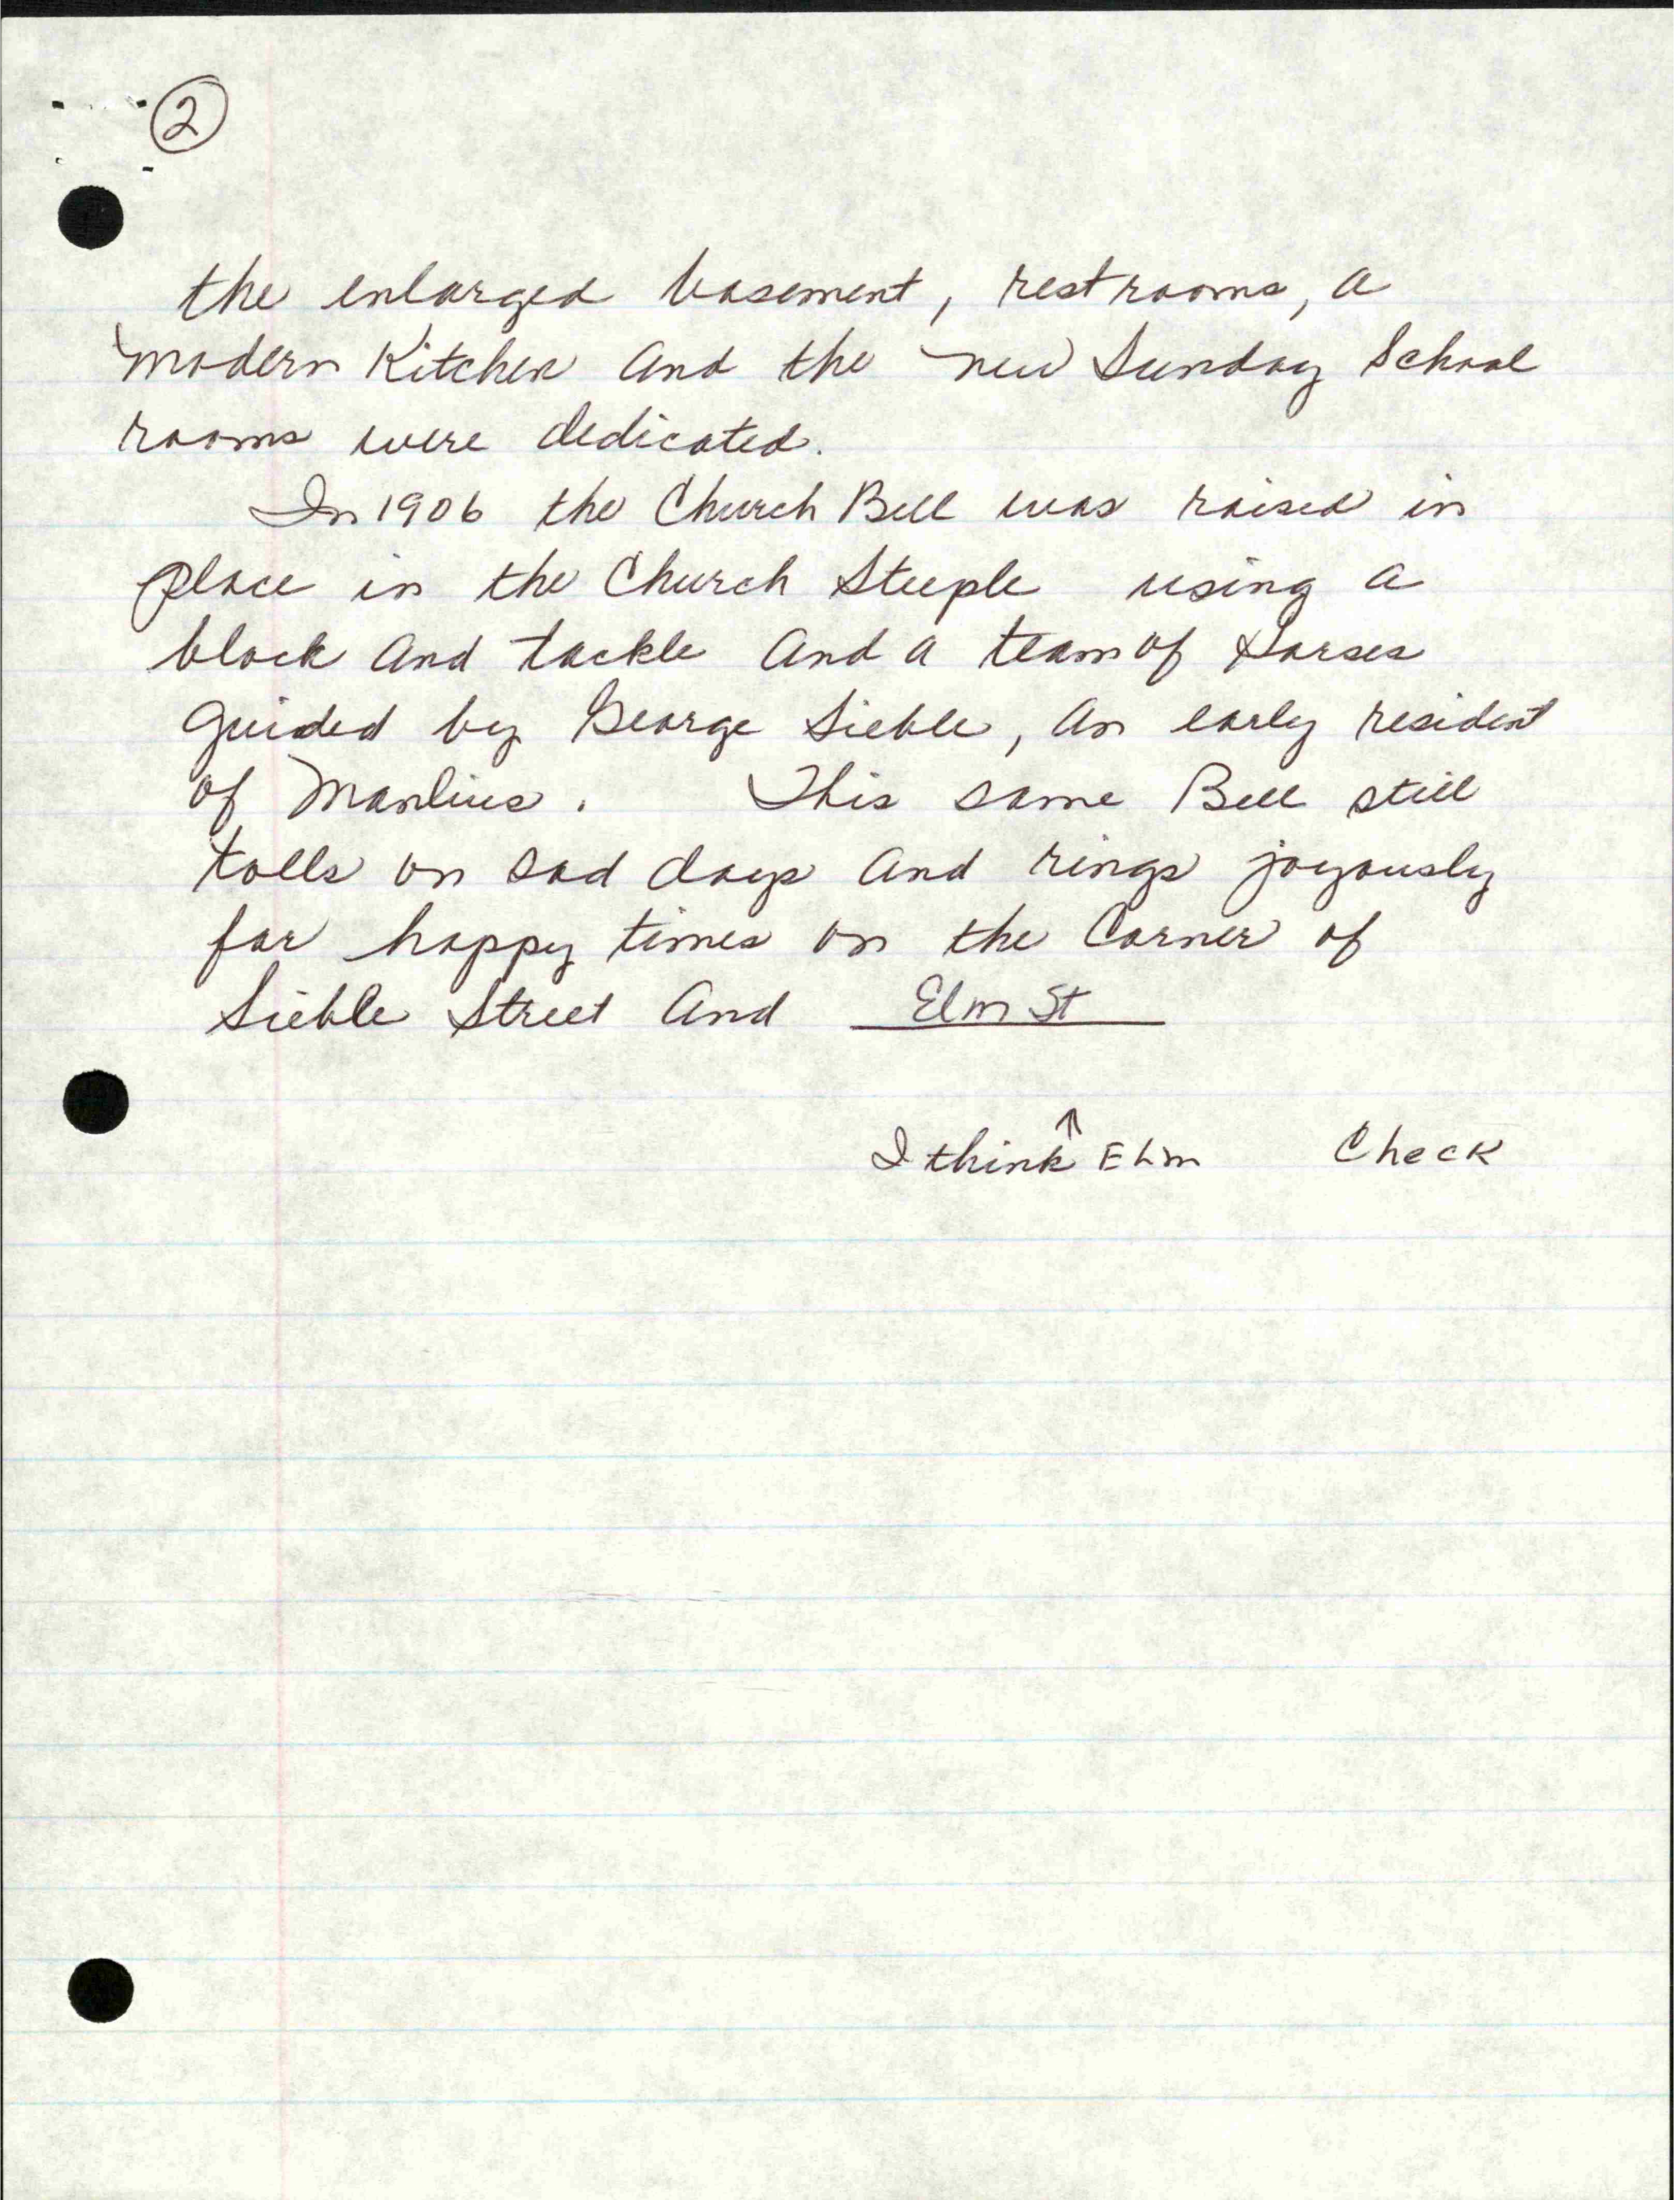 2
the enlarged basement, restrooms, a
modern Kitchen and the new Sunday School
rooms were dedicated.
In 1906 the Church Bell was raised in
place in the Church Steeple using a
block and tackle and a team of Horses
guided by George Sieble, an early resident
of Manlius. This same Bell still
tolls on sad days and rings joyously
for happy times on the Corner of
Sieble Street and Elm St
↑
I think ELm Check